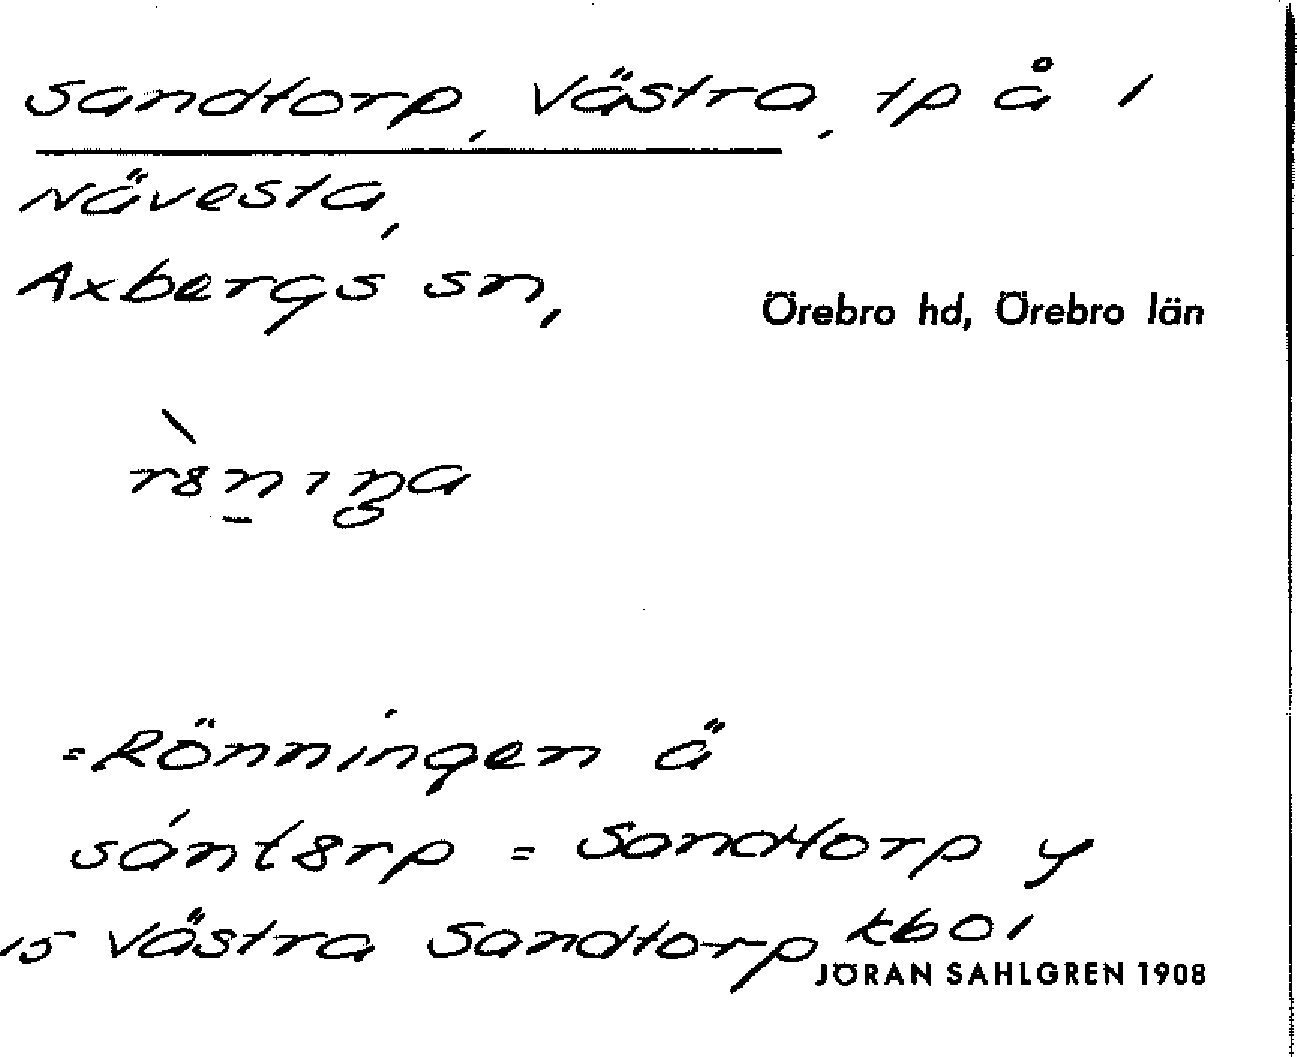 Sandtorp, Västra, tp å 1
Nävesta,
Axbergs sn,
Örebro hd, Örebro län
= Rönningen ä
sánt8rp = Sandtorp y
15 Västra Sandtorp kb01
JÖRAN SAHLGREN 1908